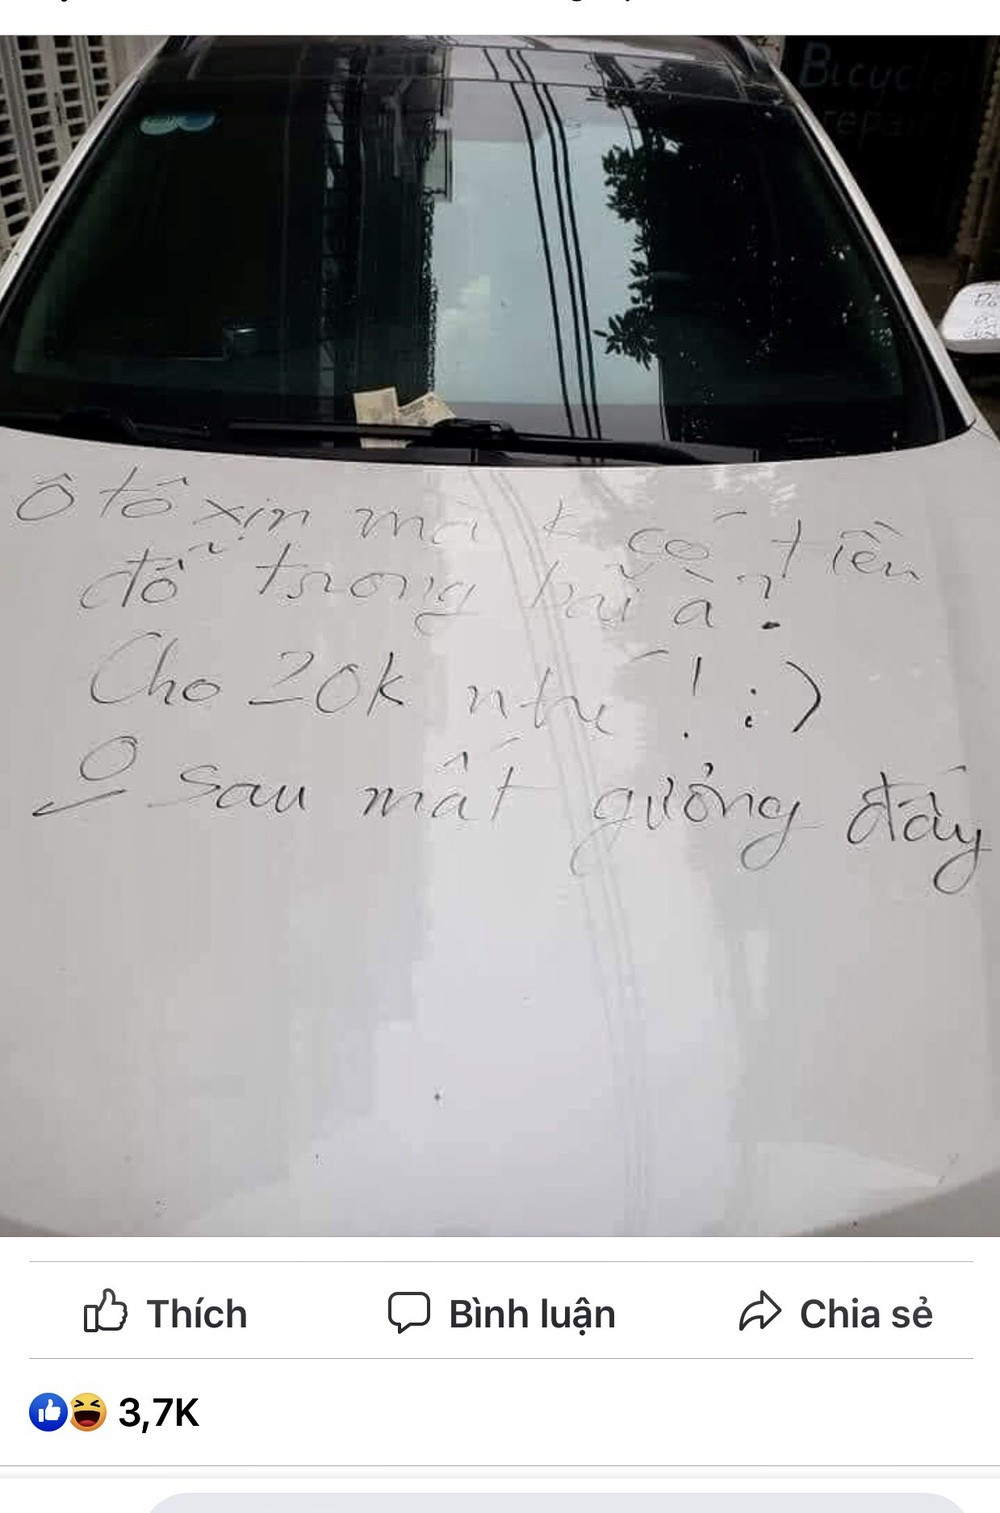 Bicycle
repair
Ô tô xịn mà k có tiền
đỗ trong bãi à?
Cho 20k nhé! :)
O sau mất gưởng đấy
Thích
Bình luận
Chia sẻ
3,7K